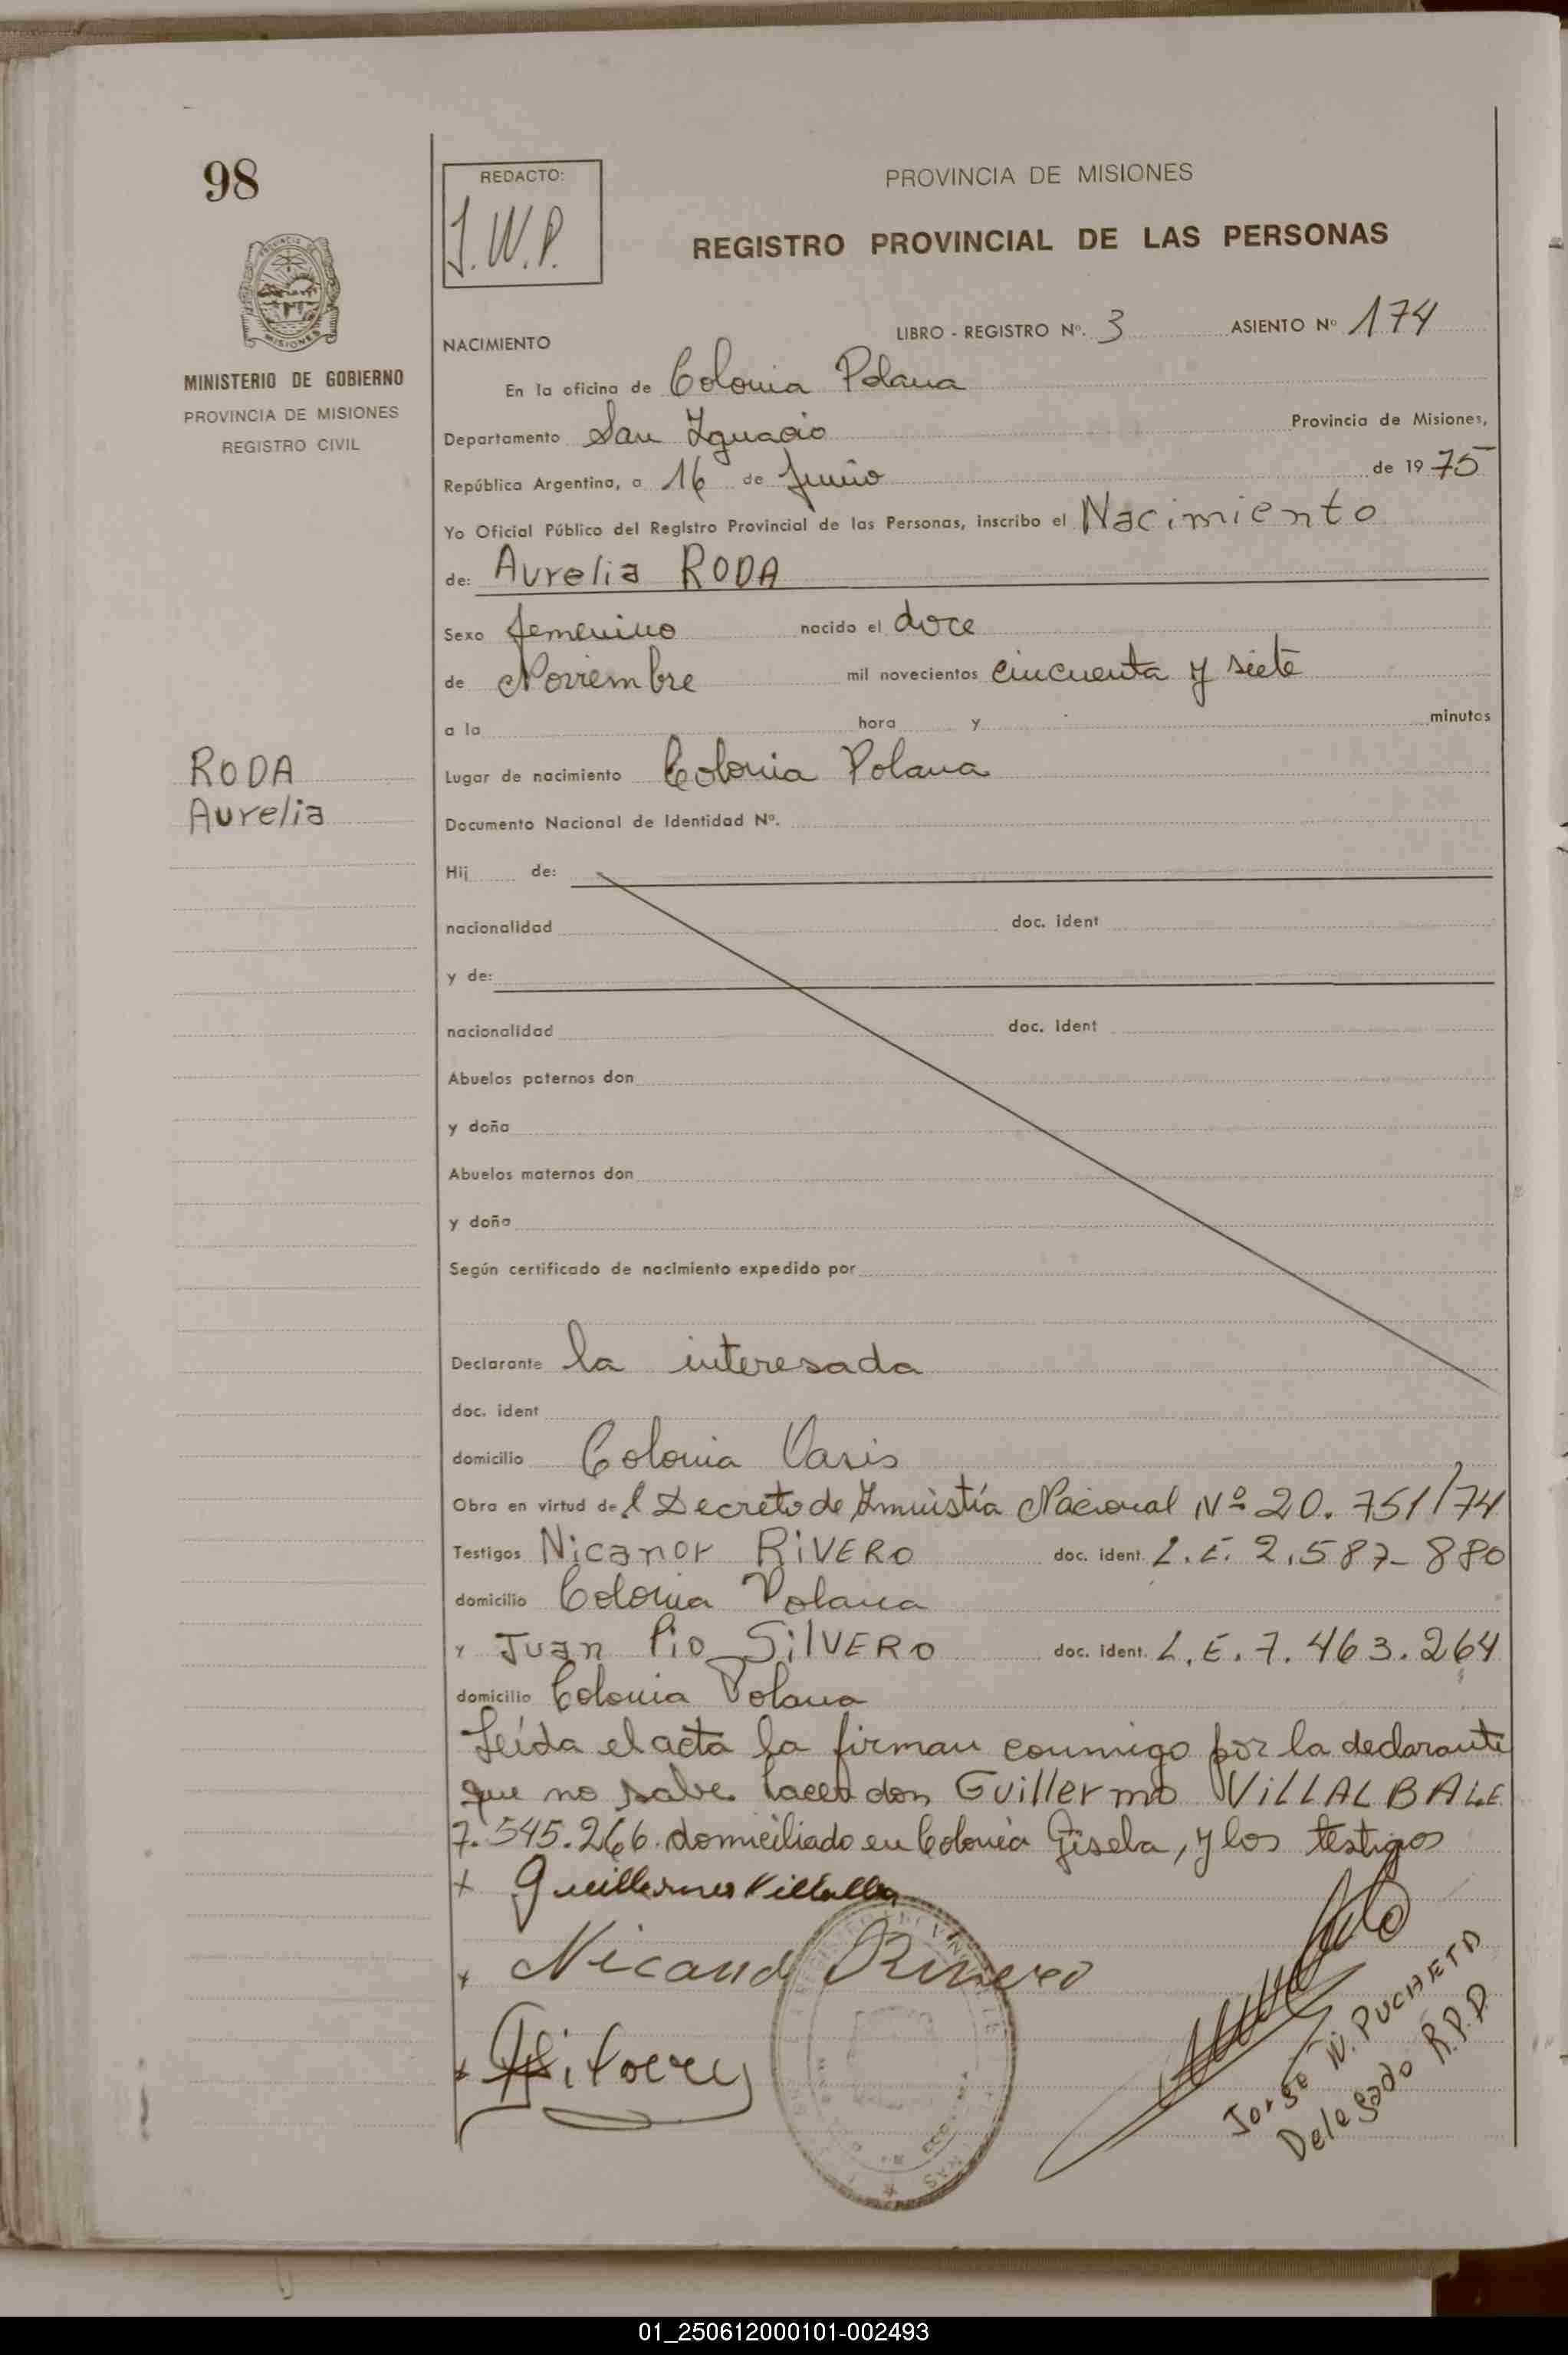 98
REDACTO:
J.W.P.
PROVINCIA DE MISIONES
REGISTRO PROVINCIAL DE LAS PERSONAS
MINISTERIO DE GOBIERNO
PROVINCIA DE MISIONES
REGISTRO CIVIL
NACIMIENTO
LIBRO - REGISTRO Nº. 3 ASIENTO Nº 174
En la oficina de Colonia Polana
Departamento San Ignacio Provincia de Misiones,
República Argentina, a 16 de Junio de 1975
Yo Oficial Público del Registro Provincial de las Personas, inscribo el Nacimiento
de: Aurelia RODA
Sexo femenino nacido el doce
de Noviembre mil novecientos cincuenta y siete
a la hora y minutos
RODA
Aurelia
Lugar de nacimiento Colonia Polana
Documento Nacional de Identidad Nº.
Hij de:
nacionalidad doc. ident
y de:
nacionalidad doc. ident
Abuelos paternos don
y doña
Abuelos maternos don
y doña
Según certificado de nacimiento expedido por
Declarante la interesada
doc. ident
domicilio Colonia Oasis
Obra en virtud del Decreto de Amnistía Nacional Nº 20.751/74
Testigos Nicanor RIVERO doc. ident. L.E. 2.587-880
domicilio Colonia Polana
y Juan Pio SILVERO doc. ident. L.E. 7.463.264
domicilio Colonia Polana
Leída el acta la firman conmigo por la declarante
que no sabe hacer don Guillermo VILLALBA L.E.
7.545.266 domiciliado en Colonia Gisela, y los testigos
Guillermo Villalba
Nicanor Rivero
Jorge W. PUCHETA
Delegado R.P.P.
MISIONES
01_250612000101-002493